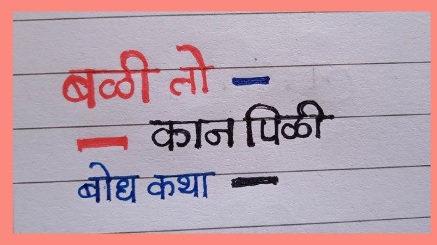 बळी तो -
- कान पिळी
बोध कथा -